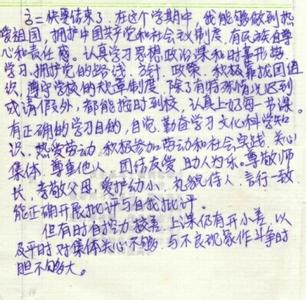 高二快要结束了。在这个学期中，我能够做到热
爱祖国，拥护中国共产党和社会主义制度，有民族自尊
心和责任感。认真学习思想政治课和时事形势
学习，拥护党的路线、方针、政策。积极靠拢团组
织，遵守学校的校章制度，除了有特殊情况迟到
或请假外，都能按时到校，认真上好每一节课。
有正确的学习目的，自觉、勤奋学习文化科学知
识，热爱劳动，积极参加劳动和社会实践，关心
集体，尊重他人，团结友爱，助人为乐。尊敬师
长，孝敬父母，爱护幼小，礼貌待人，言行一致，
能正确开展批评与自我批评。
但有时自控力较差，上课仍有开小差，以
及平时对集体关心不够，与不良现象作斗争时
胆不够大。